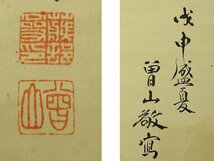 戊申盛夏
曽山敬寫
曾山